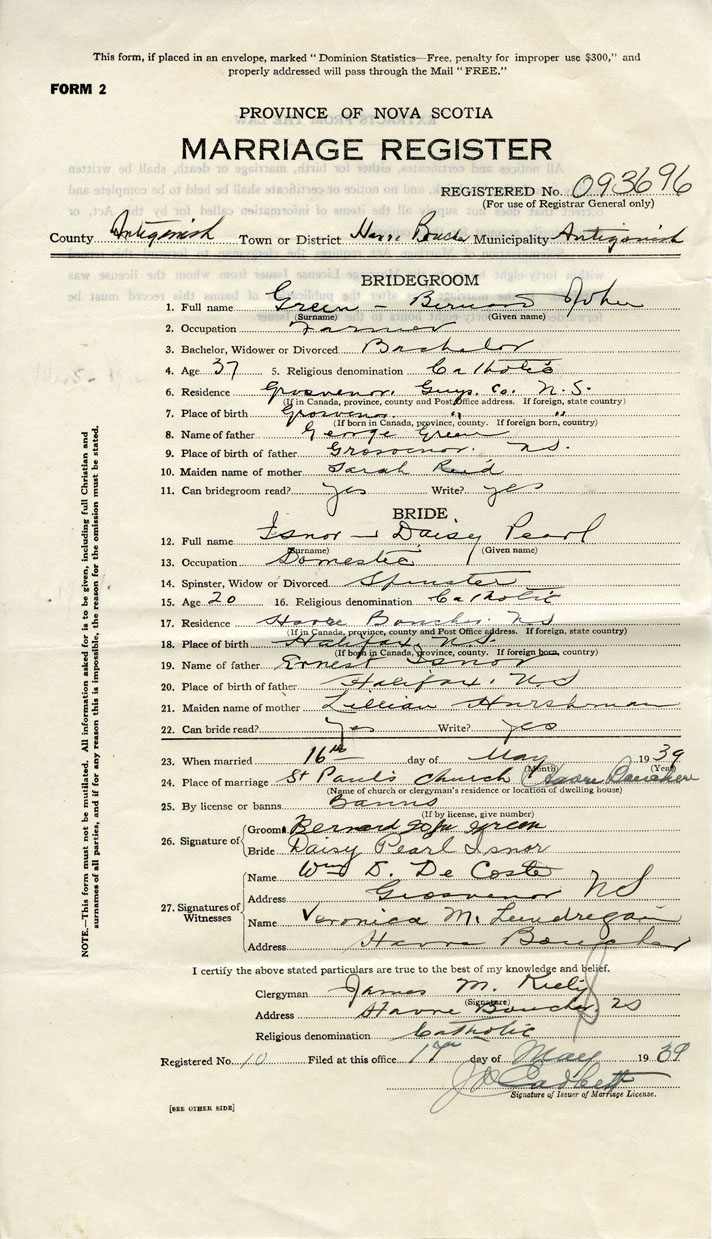 This form, if placed in an envelope, marked "Dominion Statistics—Free, penalty for improper use $300," and
properly addressed will pass through the Mail "FREE."
FORM 2
PROVINCE OF NOVA SCOTIA
MARRIAGE REGISTER
REGISTERED No. 093696
(For use of Registrar General only)
County Antigonish Town or District Havre Boucher Municipality Antigonish
BRIDEGROOM
1. Full name Green - Bernard John
(Surname) (Given name)
2. Occupation Farmer
3. Bachelor, Widower or Divorced Bachelor
4. Age 37 5. Religious denomination Catholic
6. Residence Grosvenor. Guys. Co. N.S.
(If in Canada, province, county and Post Office address. If foreign, state country)
7. Place of birth Grosvenor " "
(If born in Canada, province, county. If foreign born, country)
8. Name of father George Green
9. Place of birth of father Grosvenor. NS.
10. Maiden name of mother Sarah Reid
11. Can bridegroom read? yes Write? yes
BRIDE
12. Full name Isnor - Daisy Pearl
(Surname) (Given name)
13. Occupation Domestic
14. Spinster, Widow or Divorced Spinster
15. Age 20 16. Religious denomination Catholic
17. Residence Havre Boucher. NS
(If in Canada, province, county and Post Office address. If foreign, state country)
18. Place of birth Halifax, N.S.
(If born in Canada, province, county. If foreign born, country)
19. Name of father Ernest Isnor
20. Place of birth of father Halifax. NS
21. Maiden name of mother Lillian Hurshman
22. Can bride read? Yes Write? Yes
23. When married 16th day of May 1939
(Month) (Year)
24. Place of marriage St Paul's Church (Havre Boucher
(Name of church or clergyman's residence or location of dwelling house)
25. By license or banns Banns
(If by license, give number)
26. Signature of
Groom Bernard John Green
Bride Daisy Pearl Isnor
27. Signatures of Witnesses
Name Wm D. De Coste
Address Grosvenor NS
Name Veronica M. Landregan
Address Havre Boucher
I certify the above stated particulars are true to the best of my knowledge and belief.
Clergyman James M. Kiely
(Signature)
Address Havre Boucher. NS
Religious denomination Catholic
Registered No. 10 Filed at this office 17th day of May 1939
Signature of Issuer of Marriage License.
[SEE OTHER SIDE]
NOTE.—This form must not be mutilated. All information asked for is to be given, including full Christian and
surnames of all parties, and if for any reason this is impossible, the reason for the omission must be stated.